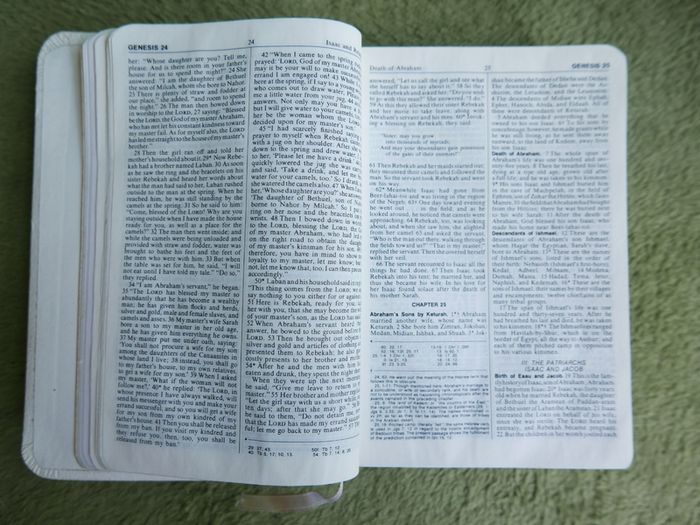 GENESIS 24
24
her: "Whose daughter are you? Tell me,
please. And is there room in your father's
house for us to spend the night?" 24 She
answered: "I am the daughter of Bethuel
the son of Milcah, whom she bore to Nahor.
25 There is plenty of straw and fodder at
our place," she added, "and room to spend
the night." 26 The man then bowed down
in worship to the LORD, 27 saying: "Blessed
be the LORD, the God of my master Abraham,
who has not let his constant kindness toward
my master fail. As for myself also, the LORD
has led me straight to the house of my master's
brother."
28 Then the girl ran off and told her
mother's household about it. 29* Now Rebek-
ah had a brother named Laban. 30 As soon
as he saw the ring and the bracelets on his
sister Rebekah and heard her words about
what the man had said to her, Laban rushed
outside to the man at the spring. When he
reached him, he was still standing by the
camels at the spring. 31 So he said to him:
"Come, blessed of the LORD! Why are you
staying outside when I have made the house
ready for you, as well as a place for the
camels?" 32 The man then went inside; and
while the camels were being unloaded and
provided with straw and fodder, water was
brought to bathe his feet and the feet of
the men who were with him. 33 But when
the table was set for him, he said, "I will
not eat until I have told my tale." "Do so,"
they replied.
34 "I am Abraham's servant," he began.
35 "The LORD has blessed my master so
abundantly that he has become a wealthy
man; he has given him flocks and herds,
silver and gold, male and female slaves, and
camels and asses. 36 My master's wife Sarah
bore a son to my master in her old age,
and he has given him everything he owns.
37 My master put me under oath, saying:
'You shall not procure a wife for my son
among the daughters of the Canaanites in
whose land I live; 38 instead, you shall go
to my father's house, to my own relatives,
to get a wife for my son.' 39 When I asked
my master, 'What if the woman will not
follow me?,' 40* he replied: 'The LORD, in
whose presence I have always walked, will
send his messenger with you and make your
errand successful, and so you will get a wife
for my son from my own kindred of my
father's house. 41 Then you shall be released
from my ban. If you visit my kindred and
they refuse you, then, too, you shall be
released from my ban.'
Isaac and
42 "When I came to the spring
prayed: 'LORD, God of my master
may it be your will to make
errand I am engaged on! 43 While
here at the spring, if I say to a young
who comes out to draw water,
me a little water from your jug, 44
answers, Not only may you have a
but I will give water to your camels,
her be the woman whom the
decided upon for my master's son.'
45 "I had scarcely finished saying
prayer to myself when Rebekah
with a jug on her shoulder. After she
down to the spring and drew water,
to her, 'Please let me have a drink.'
quickly lowered the jug she was
and said, 'Take a drink, and let me
water for your camels, too.' So I drank,
she watered the camels also. 47 When I
her, 'Whose daughter are you?' she
'The daughter of Bethuel, son of
borne to Nahor by Milcah.' So I put
ring on her nose and the bracelets on
wrists. 48 Then I bowed down in
to the LORD, blessing the LORD, the
of my master Abraham, who had led
on the right road to obtain the daughter
of my master's kinsman for his son.
therefore, you have in mind to show
loyalty to my master, let me know; but
not, let me know that, too. I can then
accordingly."
50* Laban and his household said in
"This thing comes from the LORD; we
say nothing to you either for or against
51 Here is Rebekah, ready for you;
her with you, that she may become the
of your master's son, as the LORD has
52 When Abraham's servant heard
answer, he bowed to the ground before
LORD. 53 Then he brought out objects
silver and gold and articles of clothing
presented them to Rebekah; he also
costly presents to her brother and
54* After he and the men with him
and drunk, they spent the night
When they were up the next
he said, "Give me leave to return
master." 55 Her brother and mother
"Let the girl stay with us a short while,
ten days; after that she may go."
he said to them, "Do not detain me,
that the LORD has made my errand
ful; let me go back to my master." 57
29: 27, 43.
Death of Abraham
25
GENESIS 25
answered, "Let us call the girl and see what
she herself has to say about it." 58 So they
called Rebekah and asked her, "Do you wish
to go with this man?" She answered, "I do."
59 At this they allowed their sister Rebekah
and her nurse to take leave, along with
Abraham's servant and his men. 60* Invok-
ing a blessing on Rebekah, they said:
"Sister, may you grow
into thousands of myriads;
And may your descendants gain possession
of the gates of their enemies!"
61 Then Rebekah and her maids started out;
they mounted their camels and followed the
man. So the servant took Rebekah and went
on his way.
62* Meanwhile Isaac had gone from
Beer-lahai-roi and was living in the region
of the Negeb. 63 One day toward evening
he went out in the field, and as he
looked around, he noticed that camels were
approaching. 64 Rebekah, too, was looking
about, and when she saw him, she alighted
from her camel 65 and asked the servant,
"Who is the man out there, walking through
the fields toward us?" "That is my master,"
replied the servant. Then she covered herself
with her veil.
66 The servant recounted to Isaac all
the things he had done. 67 Then Isaac took
Rebekah into his tent; he married her, and
thus she became his wife. In his love for
her Isaac found solace after the death of
his mother Sarah.
CHAPTER 25
Abraham's Sons by Keturah. 1* Abraham
married another wife, whose name was
Keturah. 2 She bore him Zimran, Jokshan,
Medan, Midian, Ishbak, and Shuah. 3* Jok-
shan became the father of Sheba and Dedan.
The descendants of Dedan were the As-
shurim, the Letushim, and the Leummim.
4 The descendants of Midian were Ephah,
Epher, Hanoch, Abida, and Eldaah. All of
these were descendants of Keturah.
5 Abraham deeded everything that he
owned to his son Isaac. 6* To his sons by
concubinage, however, he made grants while
he was still living, as he sent them away
eastward, to the land of Kedem, away from
his son Isaac.
Death of Abraham. 7 The whole span of
Abraham's life was one hundred and seventy-
five years. 8 Then he breathed his last,
dying at a ripe old age, grown old after
a full life; and he was taken to his kinsmen.
9* His sons Isaac and Ishmael buried him
in the cave of Machpelah, in the field of
Ephron, son of Zohar the Hittite, which faces
Mamre, 10 the field that Abraham had bought
from the Hittites; there he was buried next
to his wife Sarah. 11 After the death of
Abraham, God blessed his son Isaac, who
made his home near Beer-lahai-roi.
Descendants of Ishmael. 12 These are the
descendants of Abraham's son Ishmael,
whom Hagar the Egyptian, Sarah's slave,
bore to Abraham. 13* These are the names
of Ishmael's sons, listed in the order of
their birth: Nebaioth (Ishmael's first-born),
Kedar, Adbeel, Mibsam, 14 Mishma,
Dumah, Massa, 15 Hadad, Tema, Jetur,
Naphish, and Kedemah. 16* These are the
sons of Ishmael, their names by their villages
and encampments; twelve chieftains of as
many tribal groups.
17 The span of Ishmael's life was one
hundred and thirty-seven years. After he
had breathed his last and died, he was taken
to his kinsmen. 18* The Ishmaelites ranged
from Havilah-by-Shur, which is on the
border of Egypt, all the way to Asshur; and
each of them pitched camp in opposition
to his various kinsmen.
III: THE PATRIARCHS
ISAAC AND JACOB
Birth of Esau and Jacob. 19 This is the fam-
ily history of Isaac, son of Abraham. Abraham
had begotten Isaac. 20* Isaac was forty years
old when he married Rebekah, the daughter
of Bethuel the Aramean of Paddan-aram
and the sister of Laban the Aramean. 21 Isaac
entreated the LORD on behalf of his wife,
since she was sterile. The LORD heard his
entreaty, and Rebekah became pregnant.
22 But the children in her womb jostled each